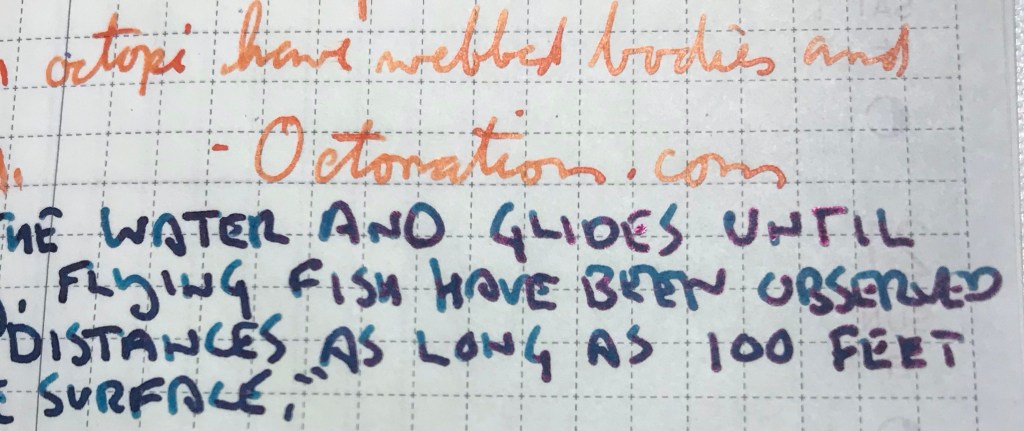 octopi have webbed bodies and
- Octonation.com
THE WATER AND GLIDES UNTIL
. FLYING FISH HAVE BEEN OBSERVED
DISTANCES AS LONG AS 100 FEET
SURFACE."